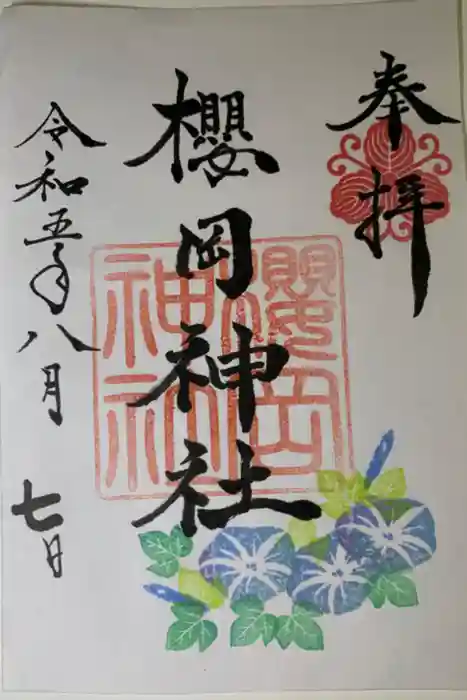 奉拝
櫻岡神社
櫻岡
神社
令和五年八月
七日